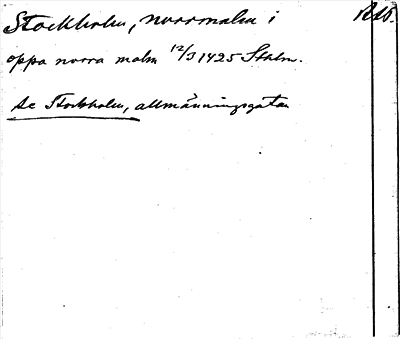 Stockholm, norrmalm i
oppa norra malm 12/3 1425 Sthlm.
Se Stockholm, allmänningsgatan